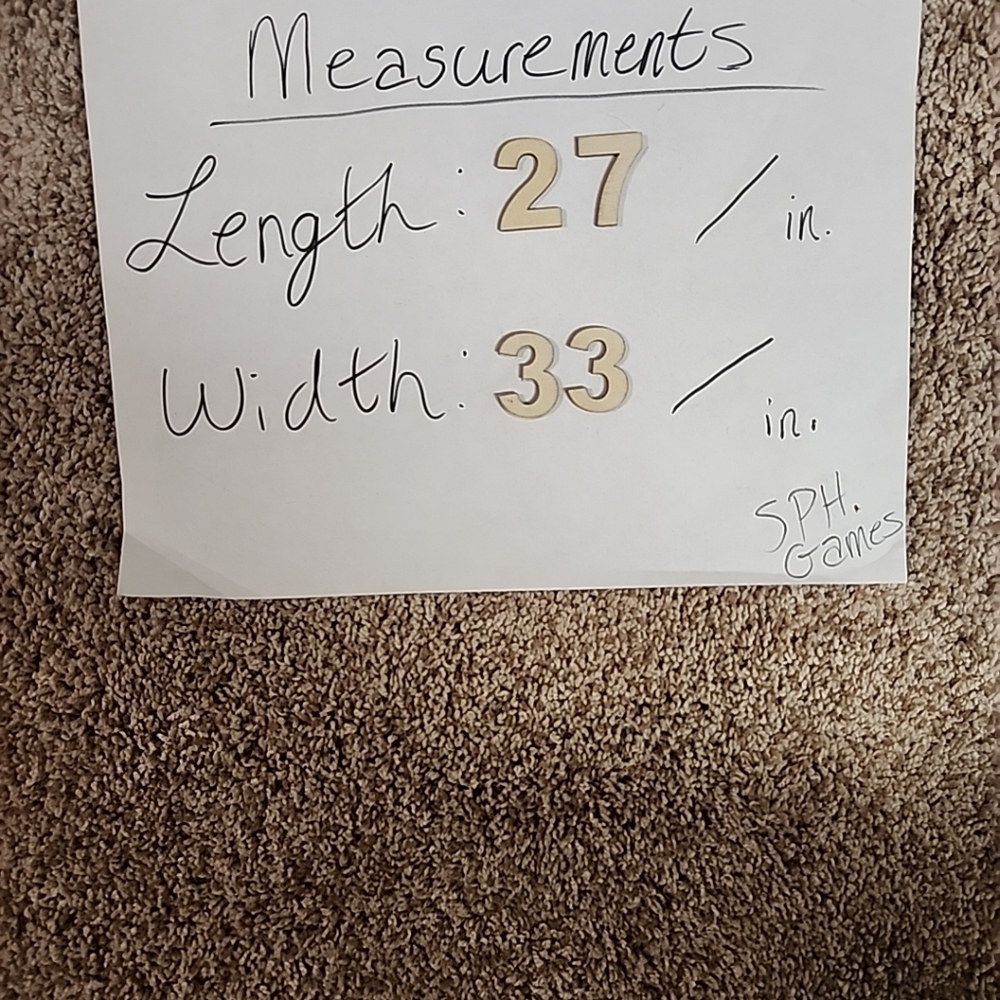 Measurements
Length: 27 / in.
Width: 33 / in.
SPH.
Games